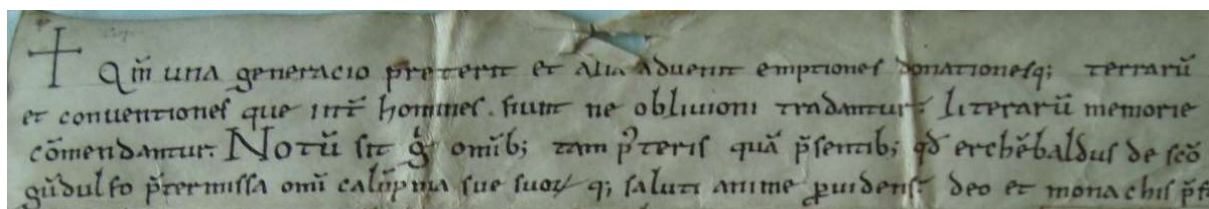 Qm̄ una generacio preterit et alia aduenit emptiones donationesq; terrarū
et conventiones que int̄ homines. fiunt ne oblivioni tradantur. literarū memorie
cōmendantur. Notū sit g̊ omīb; tam p̄teris quā p̄sentib; qđ erchēbaldus de scō
gūdulfo p̄termissa omī calūpnia sue suorꝝ q; saluti anime ꝓuidens. deo et monachis